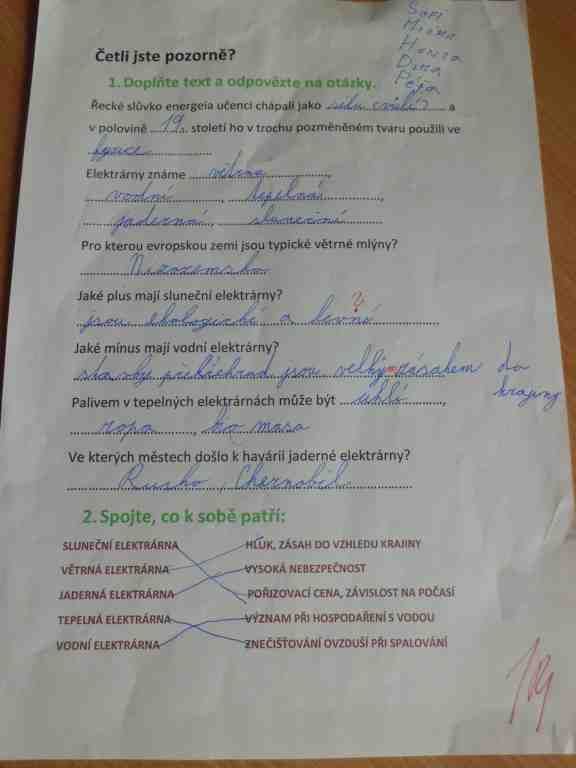 Sofi
Miška
Honza
Dina
Pepa
Četli jste pozorně?
1. Doplňte text a odpovězte na otázky.
Řecké slůvko energeia učenci chápali jako sílu a
v polovině 19. století ho v trochu pozměněném tvaru použili ve
fyzice
Elektrárny známe větrné,
vodní, tepelná,
jaderná, sluneční
Pro kterou evropskou zemi jsou typické větrné mlýny?
Nizozemsko
Jaké plus mají sluneční elektrárny?
?
jsou ekologické a levné
Jaké mínus mají vodní elektrárny?
stavby přehrad jsou velkým zásahem do
krajiny
Palivem v tepelných elektrárnách může být uhlí,
ropa, bo masa
Ve kterých městech došlo k havárii jaderné elektrárny?
Rusko, Chernobil
2. Spojte, co k sobě patří:
SLUNEČNÍ ELEKTRÁRNA HLUK, ZÁSAH DO VZHLEDU KRAJINY
VĚTRNÁ ELEKTRÁRNA VYSOKÁ NEBEZPEČNOST
JADERNÁ ELEKTRÁRNA POŘIZOVACÍ CENA, ZÁVISLOST NA POČASÍ
TEPELNÁ ELEKTRÁRNA VÝZNAM PŘI HOSPODAŘENÍ S VODOU
VODNÍ ELEKTRÁRNA ZNEČIŠŤOVÁNÍ OVZDUŠÍ PŘI SPALOVÁNÍ